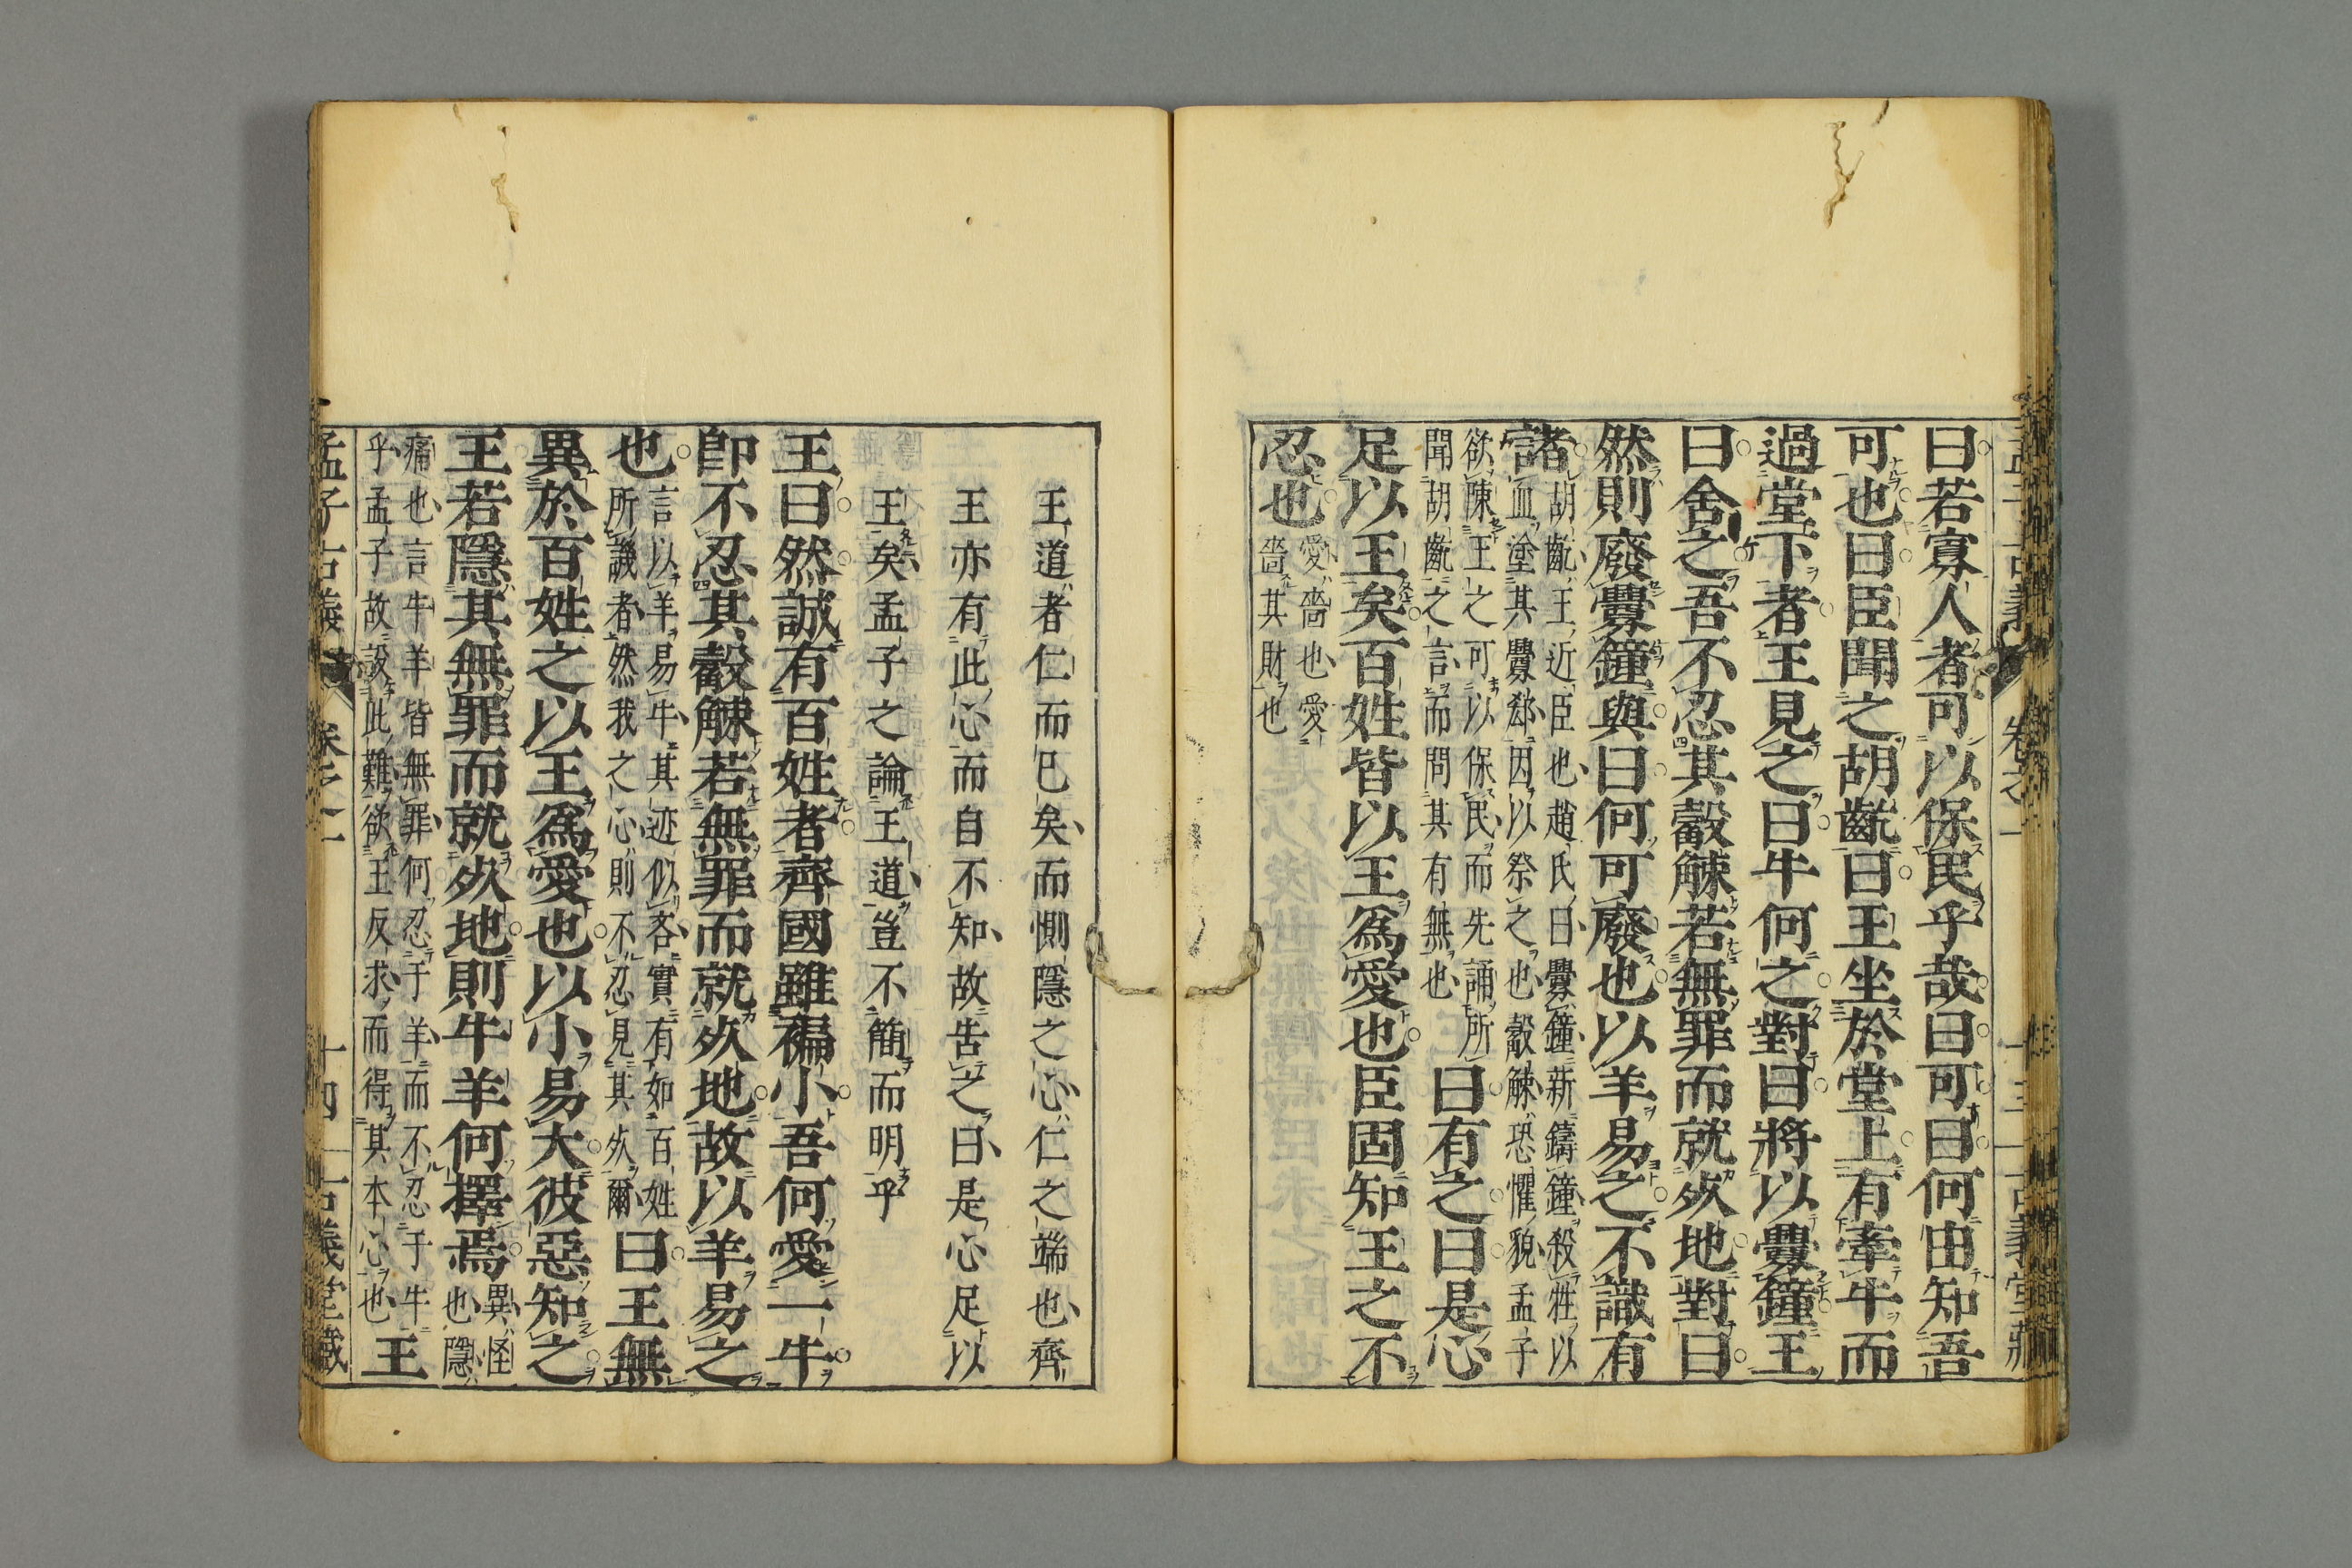 曰若寡人者可以保民乎哉曰可曰何由知吾
可也曰臣聞之胡齕曰王坐於堂上有牽牛而
過堂下者王見之曰牛何之對曰將以釁鐘王
曰舍之吾不忍其觳觫若無罪而就死地對曰
然則廢釁鐘與曰何可廢也以羊易之不識有
諸
胡齕王近臣也趙氏曰釁鐘新鑄鐘殺牲以
血塗其釁郄因以祭之也觳觫恐懼貌孟子
欲陳王之可以保民而先誦所
聞胡齕之言而問其有無也
曰有之曰是心
足以王矣百姓皆以王爲愛也臣固知王之不
忍也
愛嗇也愛
嗇其財也
王道者仁而已矣而惻隱之心仁之端也齊
王亦有此心而自不知故告之曰是心足以
王矣孟子之論王道豈不簡而明乎
王曰然誠有百姓者齊國雖褊小吾何愛一牛
卽不忍其觳觫若無罪而就死地故以羊易之
也
言以羊易牛其迹似吝實有如百姓
所譏者然我之心則不忍見其死爾
曰王無
異於百姓之以王爲愛也以小易大彼惡知之
王若隱其無罪而就死地則牛羊何擇焉
異怪
也隱
痛也言牛羊皆無罪何忍于羊而不忍于牛
乎孟子故設此難欲王反求而得其本心也
王
孟子古義 卷之一 十四 古義堂藏